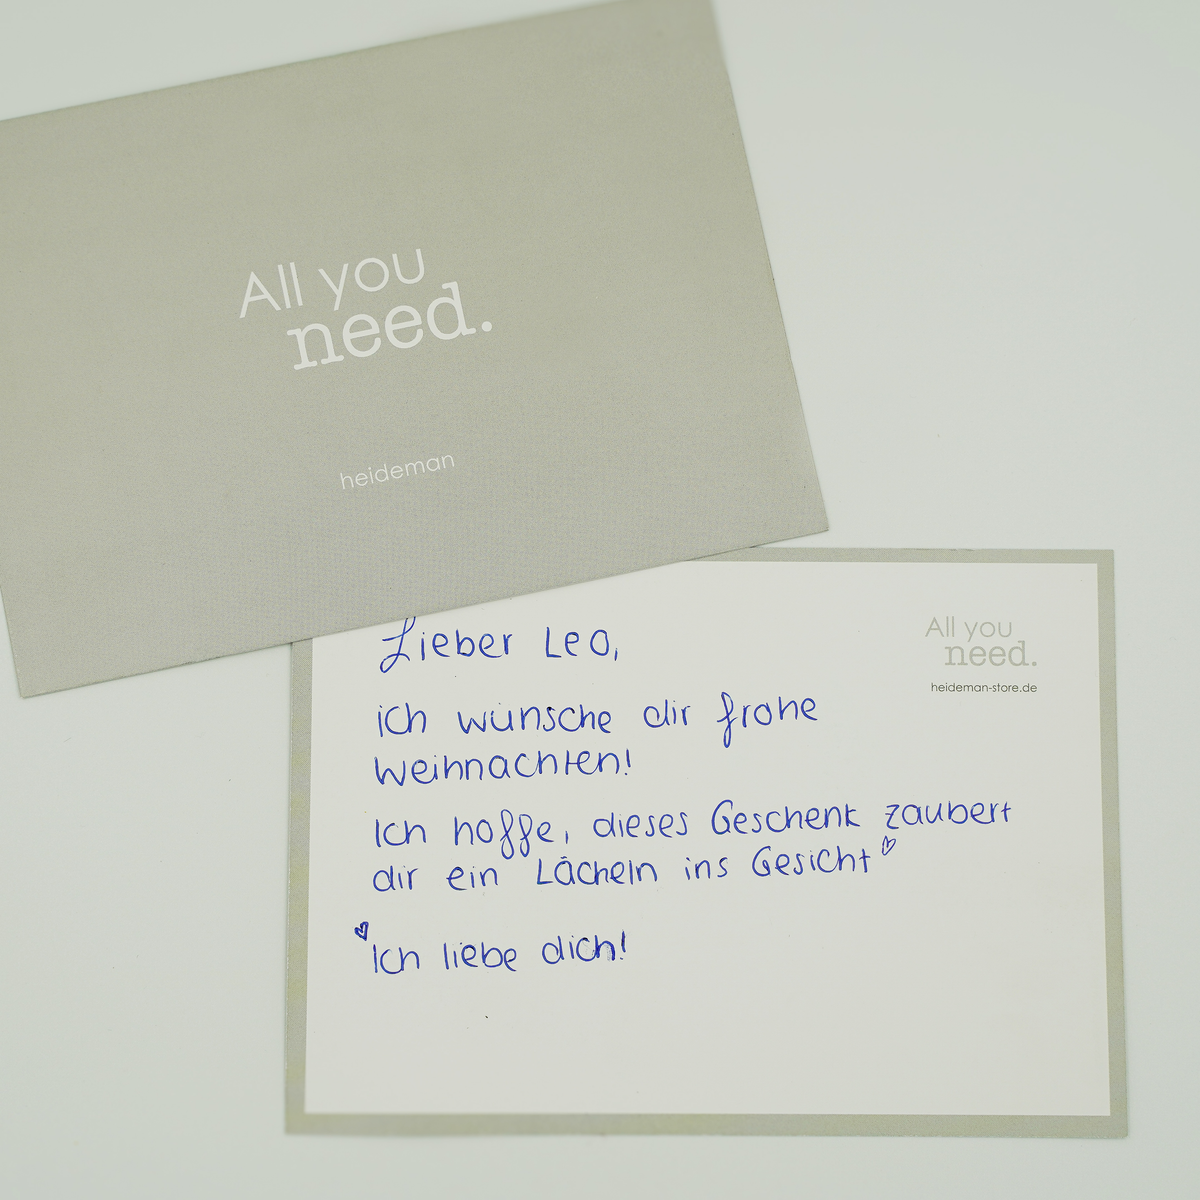 All you
need.
heideman
All you
need.
heideman-store.de
Lieber Leo,
ich wünsche dir frohe
Weihnachten!
Ich hoffe, dieses Geschenk zaubert
dir ein Lächeln ins Gesicht
Ich liebe dich!